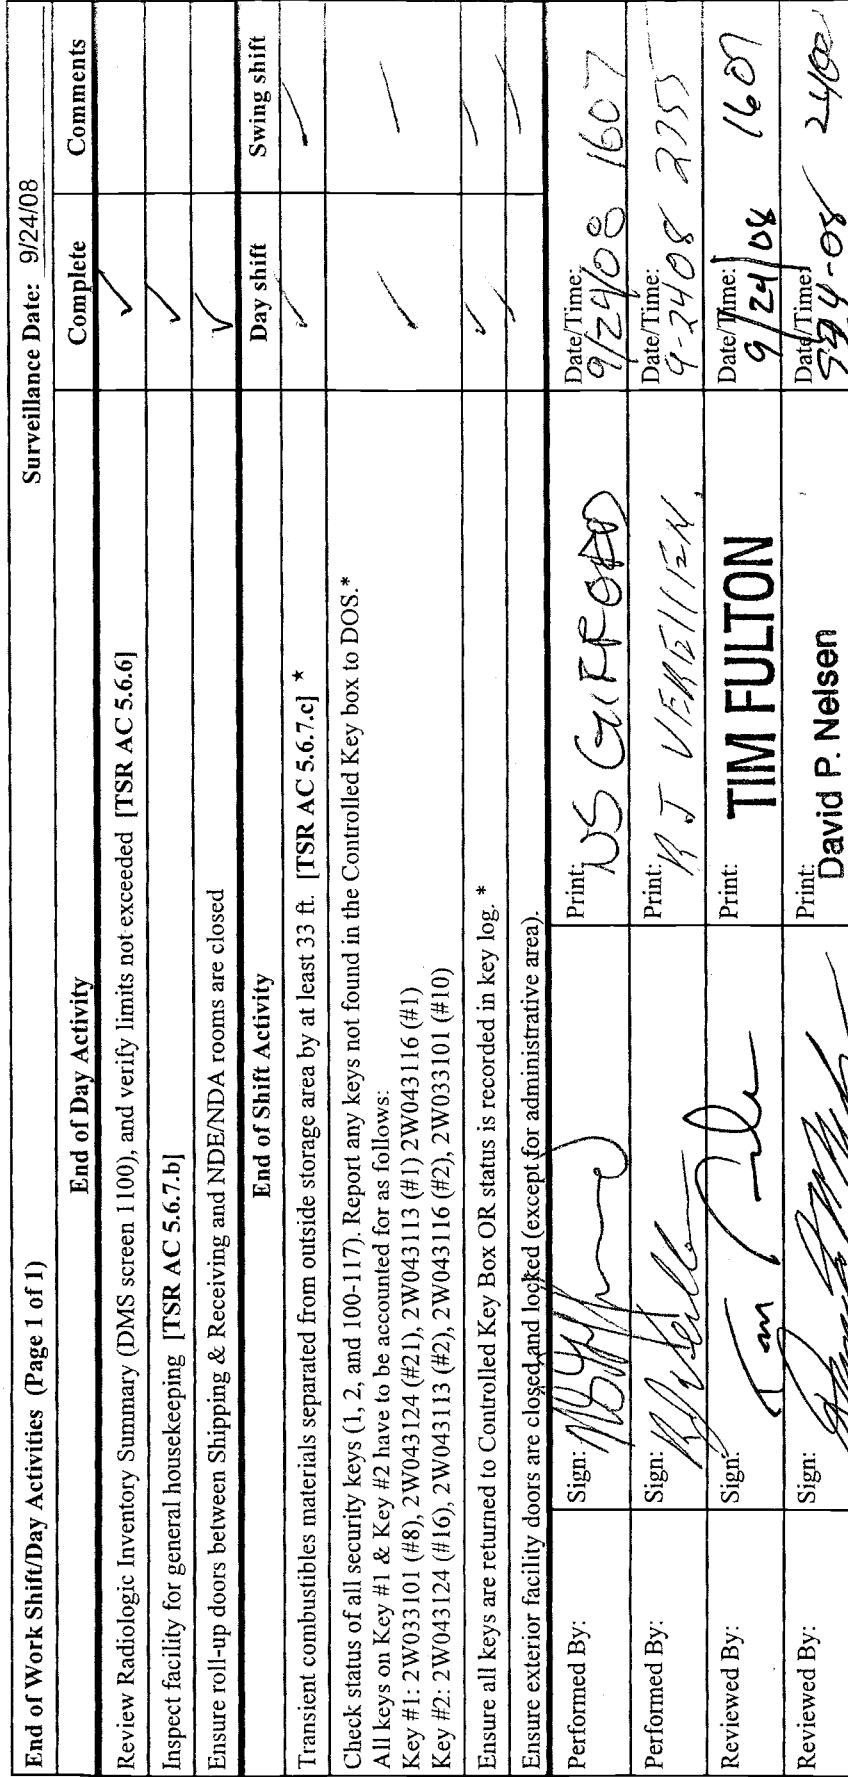 End of Work Shift/Day Activities (Page 1 of 1) Surveillance Date: 9/24/08
End of Day Activity Complete Comments
Review Radiologic Inventory Summary (DMS screen 1100), and verify limits not exceeded [TSR AC 5.6.6] ✓
Inspect facility for general housekeeping [TSR AC 5.6.7.b] ✓
Ensure roll-up doors between Shipping & Receiving and NDE/NDA rooms are closed ✓
End of Shift Activity Day shift Swing shift
Transient combustibles materials separated from outside storage area by at least 33 ft. [TSR AC 5.6.7.c] * ✓ ✓
Check status of all security keys (1, 2, and 100-117). Report any keys not found in the Controlled Key box to DOS.*
All keys on Key #1 & Key #2 have to be accounted for as follows:
Key #1: 2W033101 (#8), 2W043124 (#21), 2W043113 (#1) 2W043116 (#1)
Key #2: 2W043124 (#16), 2W043113 (#2), 2W043116 (#2), 2W033101 (#10)
Ensure all keys are returned to Controlled Key Box OR status is recorded in key log. * ✓ ✓
Ensure exterior facility doors are closed and locked (except for administrative area). ✓ ✓
Performed By: Sign: Print: NS GIFFORD Date/Time: 9/24/08 1607
Performed By: Sign: Print: RJ VERELLEN Date/Time: 9-24-08 2355
Reviewed By: Sign: Print: TIM FULTON Date/Time: 9/24/08 1607
Reviewed By: Sign: Print: David P. Nelsen Date/Time: 2400